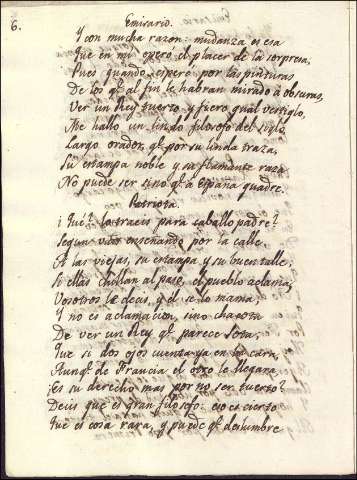 6.
Emisario.
Y con mucha razon: mudanza es esa
Que en mi operó el placer de la sorpresa,
Pues quando esperé por las pinturas
De los qe. al fin le habran mirado à obscuras,
Ver un Rey tuerto y fiero qual vestiglo,
Me hallo un lindo filosofo del siglo,
Largo orador, qe. por su linda traza,
Su estampa noble y su flamante raza
No puede ser sino qe. à España quadre.
Patriota.
¿Què? lo traeis para caballo padre?
Segun vais enseñando por la calle
A las viejas, su estampa y su buen talle.
Si ellas chillan al paso, el pueblo aclama,
Vosotros le decis, y el se lo mama,
Y no es aclamacion, sino chacota
De ver un Rey qe. parece Sota;
Que si dos ojos cuenta ya en la cara,
Aunqe. de Francia el otro le llegara,
¿Es su derecho mas por no ser tuerto?
Deüs que es gran filosofo: eso es cierto
Que es cosa rara, y puede qe. deslumbre